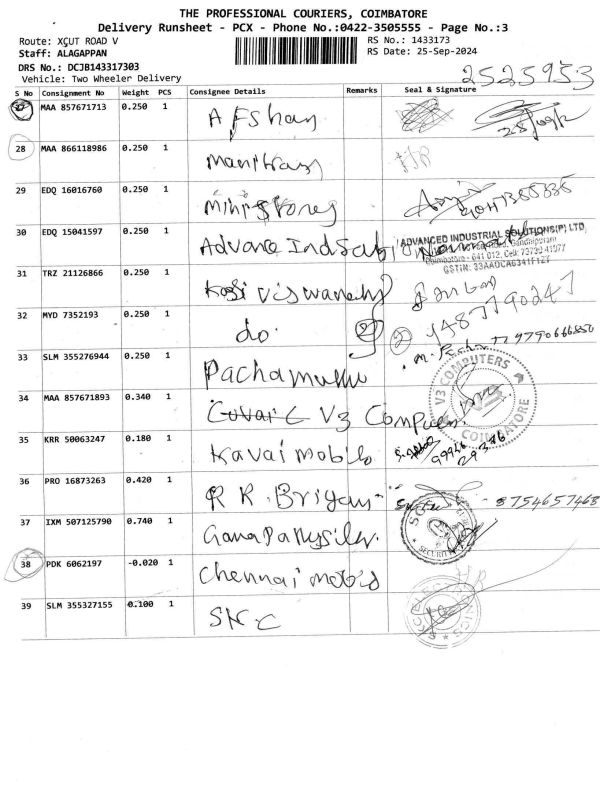 THE PROFESSIONAL COURIERS, COIMBATORE
Delivery Runsheet - PCX - Phone No.:0422-3505555 - Page No.:3
Route: XÇUT ROAD V
RS No.: 1433173
Staff: ALAGAPPAN
RS Date: 25-Sep-2024
DRS No.: DCJB143317303
Vehicle: Two Wheeler Delivery
2525953
S No Consignment No Weight PCS Consignee Details Remarks Seal & Signature
27 MAA 857671713 0.250 1 Afshan
28 MAA 866118986 0.250 1
29 EDQ 16016760 0.250 1 Mini Stones
30 EDQ 15041597 0.250 1 Advance Ind
ADVANCED INDUSTRIAL SOLUTIONS(P) LTD
Gandhipuram
Coimbatore - 641 012, Cell: 73739 41977
GSTIN: 33AADCA6341F1ZY
31 TRZ 21126866 0.250 1 Kasi Viswanath
32 MYD 7352193 0.250 1 do. 2
2
33 SLM 355276944 0.250 1 Pachamuthu
9790666850
34 MAA 857671893 0.340 1 V3 Computer
V3 COMPUTERS
COIMBATORE
35 KRR 50063247 0.180 1 Kavai mobile
36 PRO 16873263 0.420 1 R K. Briyani
8754657468
37 IXM 507125790 0.740 1
SECURITY
38 PDK 6062197 -0.020 1 Chennai mobils
39 SLM 355327155 0.100 1 SNC